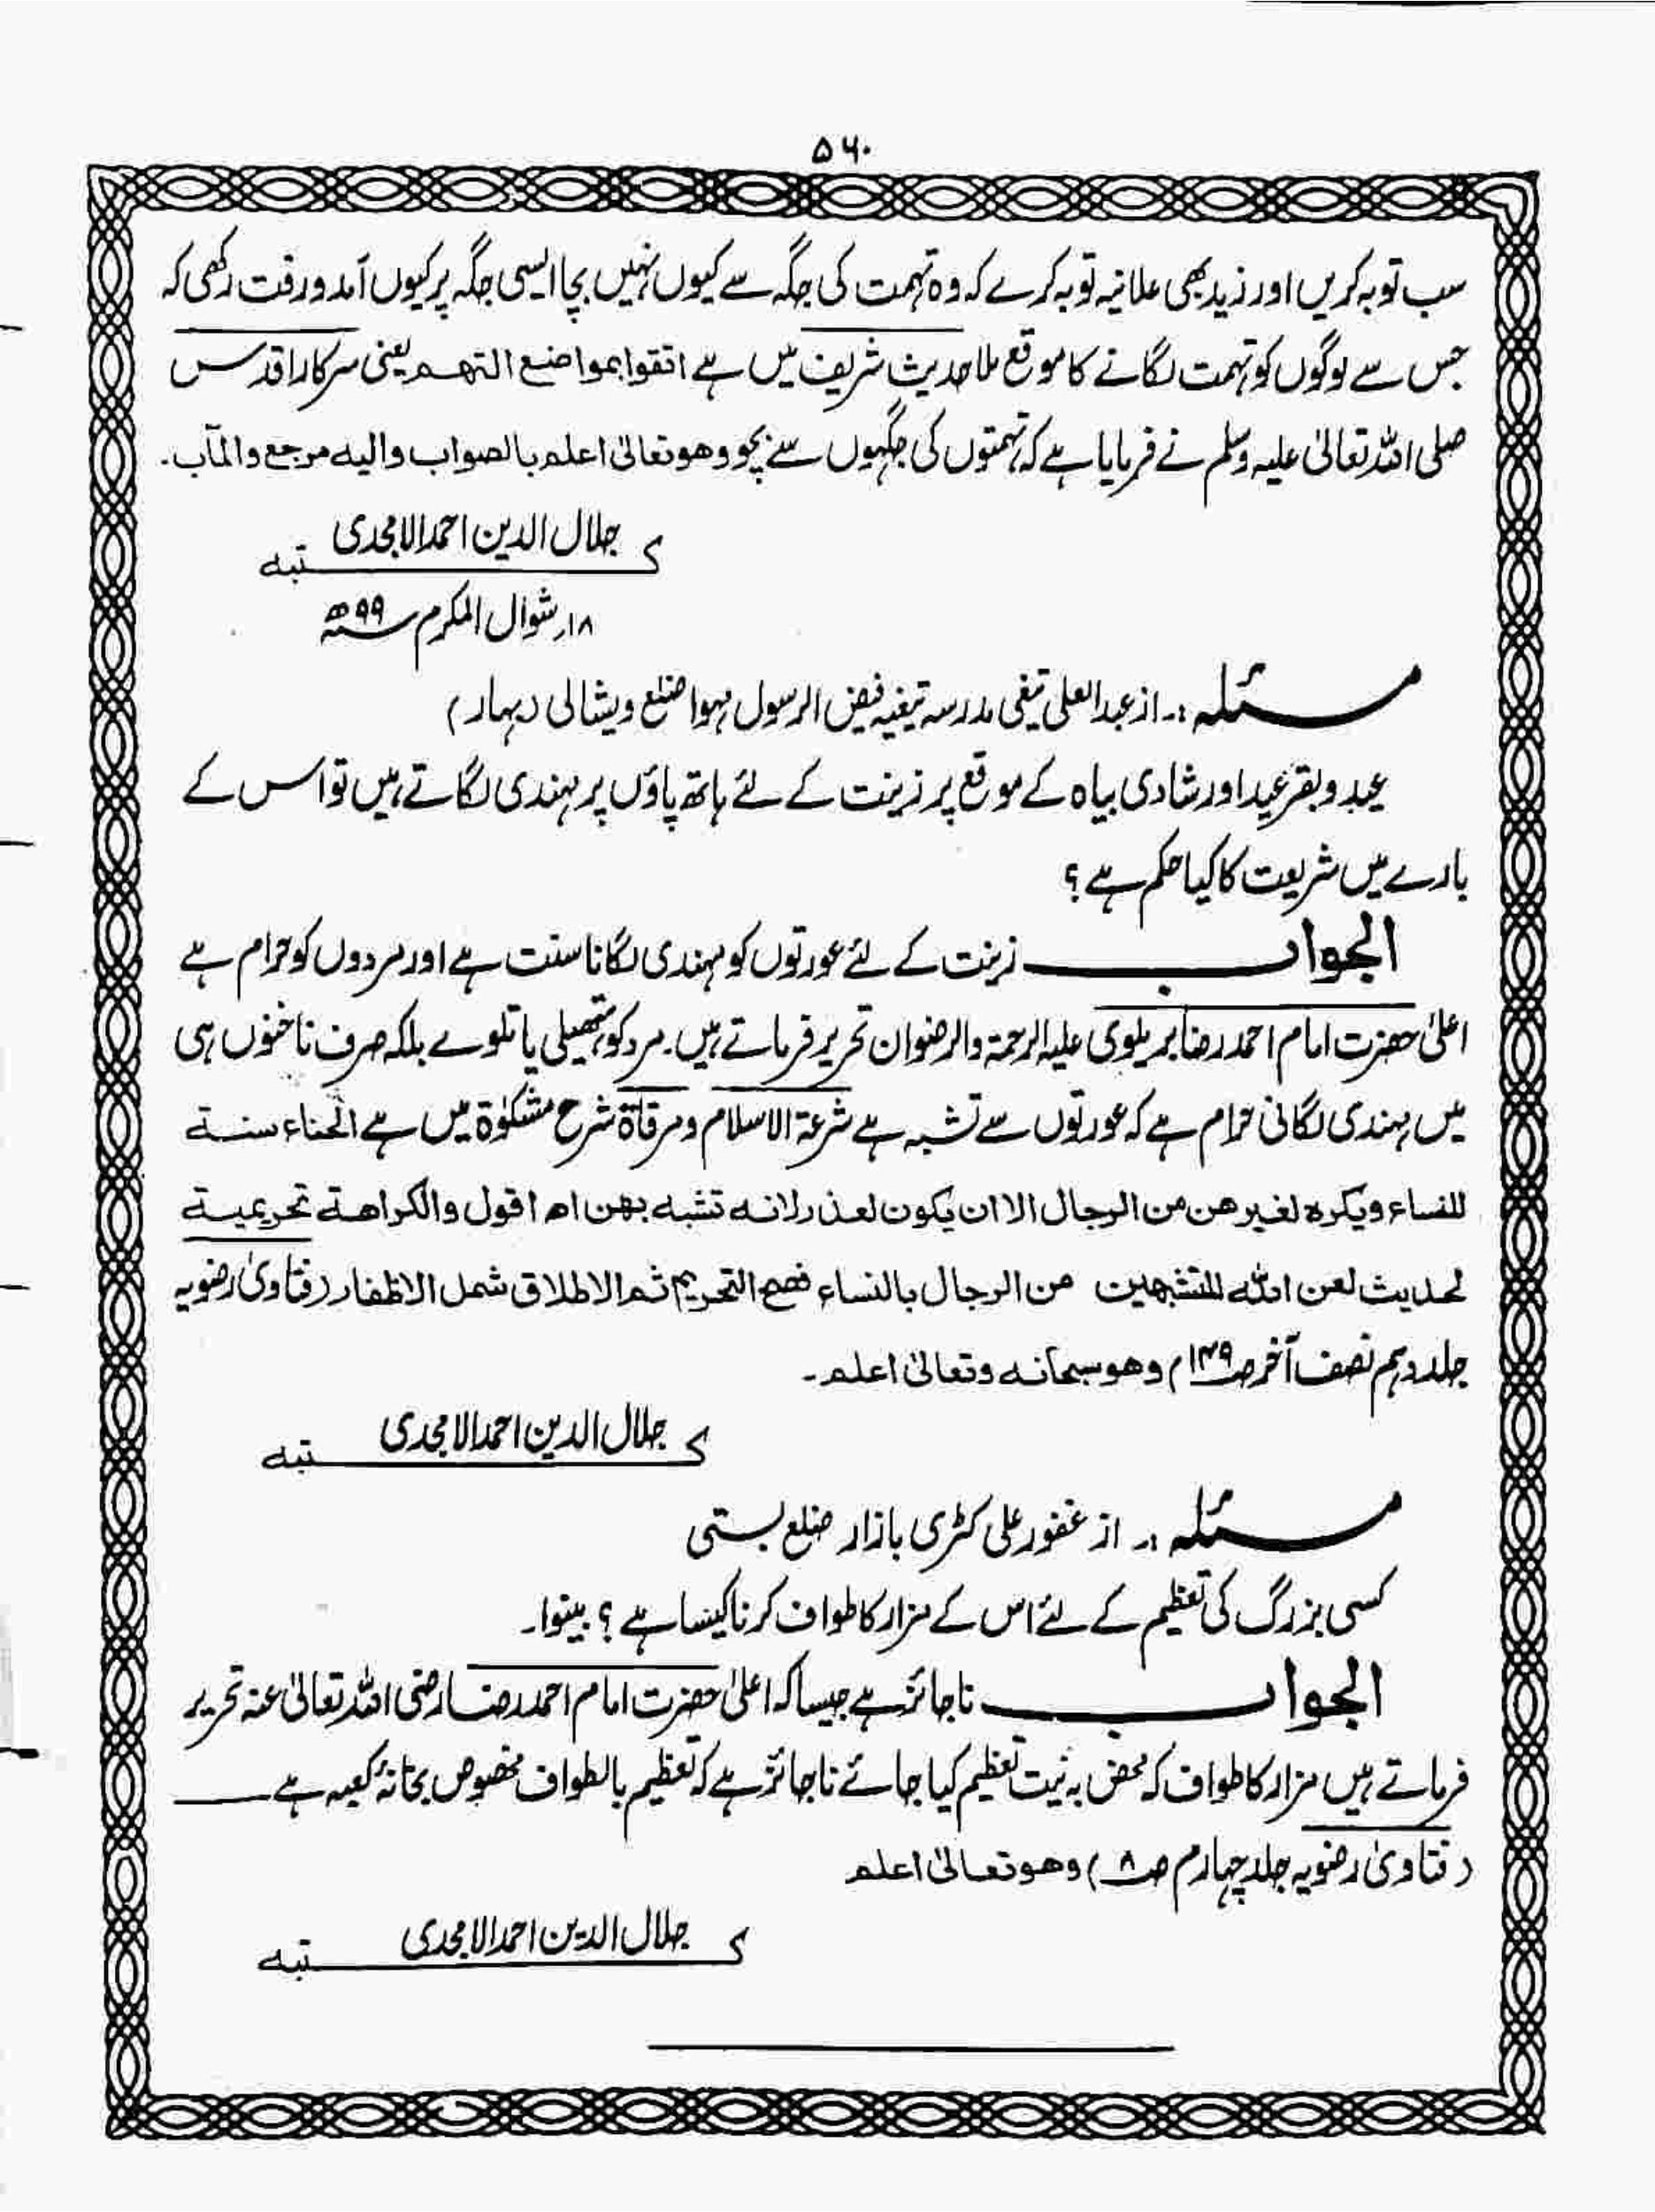 ۵۶۰
سب توبہ کریں اور زید بھی علانیہ توبہ کرے کہ وہ تہمت کی جگہ سے کیوں نہیں بچا ایسی جگہ پر کیوں آمد و رفت رکھی کہ
جس سے لوگوں کو تہمت لگانے کا موقع ملا حدیث شریف میں ہے اتقوا بمواضع التهم یعنی سرکار اقدس
صلی اللہ تعالیٰ علیہ وسلم نے فرمایا ہے کہ تہمتوں کی جگہوں سے بچو وھو تعالیٰ اعلم بالصواب والیہ مرجع والمآب۔
کتبہ جلال الدین احمد الامجدی
۱۸؍ شوال المکرم سنہ ۹۹ھ
مسئلہ :۔ از عبد العلی تیغی مدرسہ تیغیہ فیض الرسول مہوا ضلع ویشالی (بہار)
عید و بقر عید اور شادی بیاہ کے موقع پر زینت کے لئے ہاتھ پاؤں پر مہندی لگاتے ہیں تو اس کے
بارے میں شریعت کا کیا حکم ہے ؟
الجواب زینت کے لئے عورتوں کو مہندی لگانا سنت ہے اور مردوں کو حرام ہے
اعلیٰ حضرت امام احمد رضا بریلوی علیہ الرحمۃ والرضوان تحریر فرماتے ہیں۔ مرد کو ہتھیلی یا تلوے بلکہ صرف ناخنوں ہی
میں مہندی لگانی حرام ہے کہ عورتوں سے تشبہ ہے شرعۃ الاسلام و مرقاۃ شرح مشکوٰۃ میں ہے الحناء سنة
للنساء ويكره لغيرهن من الرجال الا ان يكون لعذر لانه تشبه بهن اھ اقول والكراهة تحريمية
لحديث لعن الله المتشبهين من الرجال بالنساء فصح التحريم ثم الاطلاق شمل الاظفار (فتاویٰ رضویہ
جلد دہم نصف آخر ص۱۴۹) وھو سبحانہ وتعالیٰ اعلم۔
کتبہ جلال الدین احمد الامجدی
مسئلہ :۔ از غفور علی کٹری بازار ضلع بستی
کسی بزرگ کی تعظیم کے لئے اس کے مزار کا طواف کرنا کیسا ہے ؟ بینوا۔
الجواب ناجائز ہے جیسا کہ اعلیٰ حضرت امام احمد رضا رضی اللہ تعالیٰ عنہ تحریر
فرماتے ہیں مزار کا طواف کہ محض بہ نیت تعظیم کیا جائے ناجائز ہے کہ تعظیم بالطواف مخصوص بخانۂ کعبہ ہے
(فتاویٰ رضویہ جلد چہارم ص۸) وھو تعالیٰ اعلم
کتبہ جلال الدین احمد الامجدی